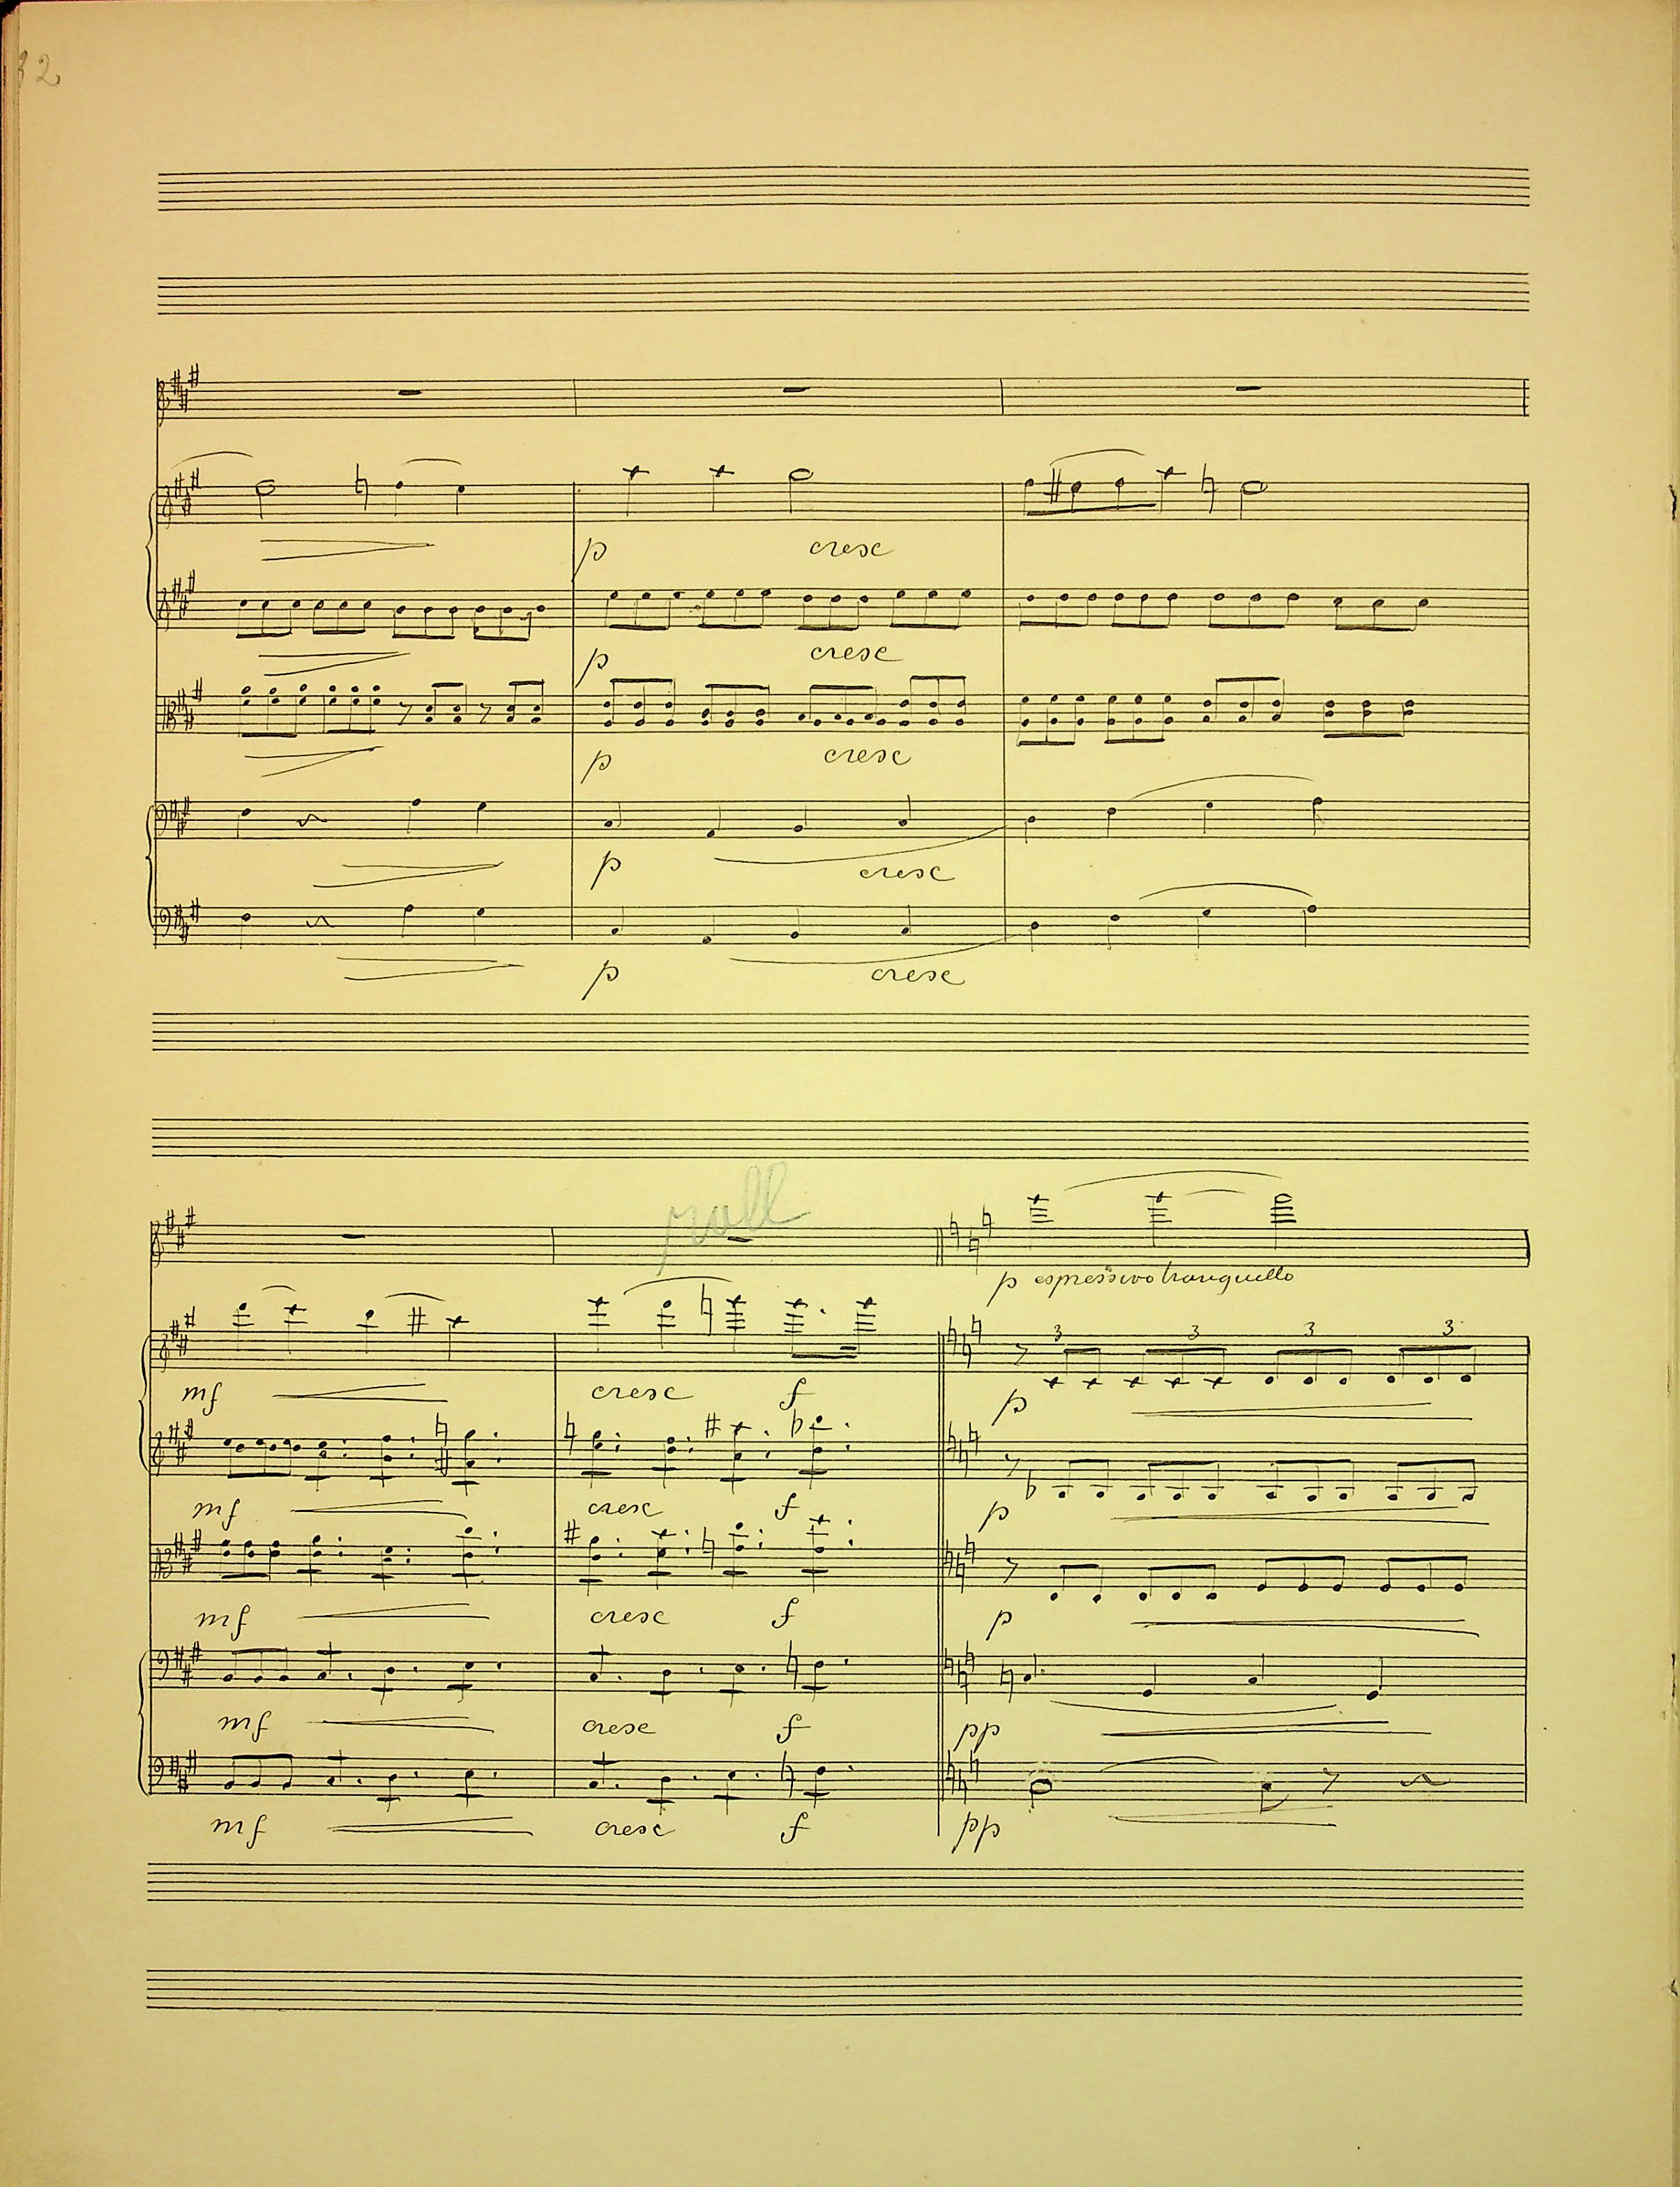 32
p cresc
p cresc
p cresc
p cresc
p cresc
rall
p espressivo tranquillo
3 3 3 3
mf cresc f p
mf cresc f p
mf cresc f p
mf cresc f pp
mf cresc f pp